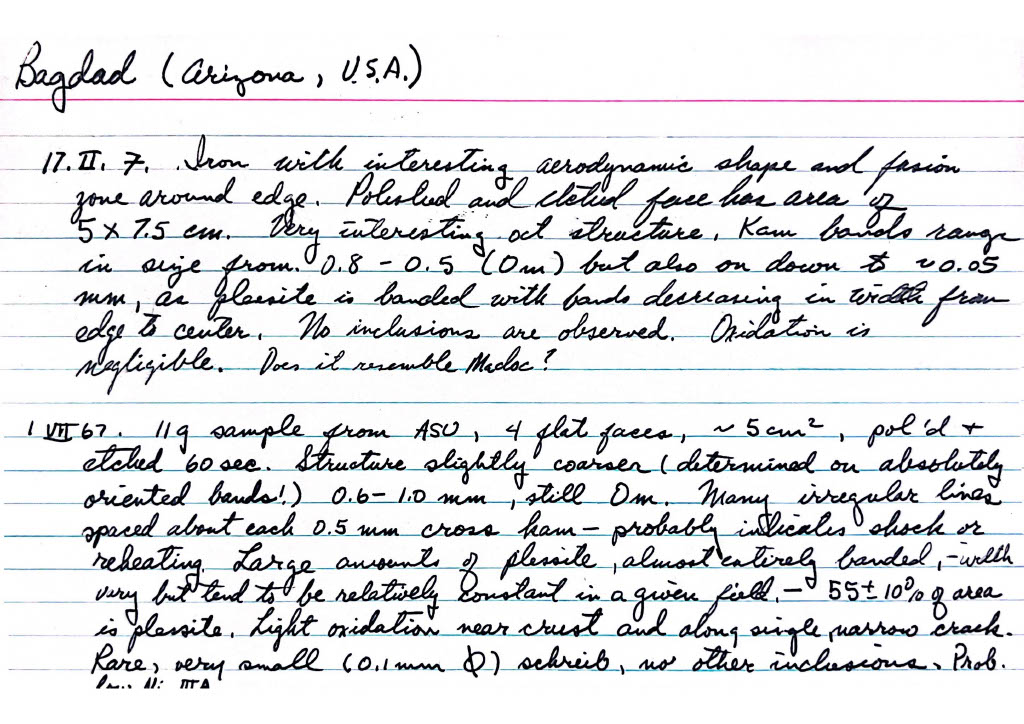 Bagdad (Arizona, U.S.A.)
17. II. 7. Iron with interesting aerodynamic shape and fusion
zone around edge. Polished and etched face has area of
5 x 7.5 cm. Very interesting oct structure. Kam bands range
in size from 0.8 - 0.5 (Om) but also on down to ~0.05
mm, as plessite is banded with bands decreasing in width from
edge to center. No inclusions are observed. Oxidation is
negligible. Does it resemble Madoc?
1 VII 67. 11g sample from ASU, 4 flat faces, ~ 5 cm², pol'd +
etched 60 sec. Structure slightly coarser (determined on absolutely
oriented bands!) 0.6 - 1.0 mm, still Om. Many irregular lines
spaced about each 0.5 mm cross kam - probably indicates shock or
reheating. Large amounts of plessite, almost entirely banded, - width
vary but tend to be relatively constant in a given field. - 55 ± 10% of area
is plessite. Light oxidation near crust and along single, narrow crack.
Rare, very small (0.1 mm Φ) schreib, no other inclusions. Prob.